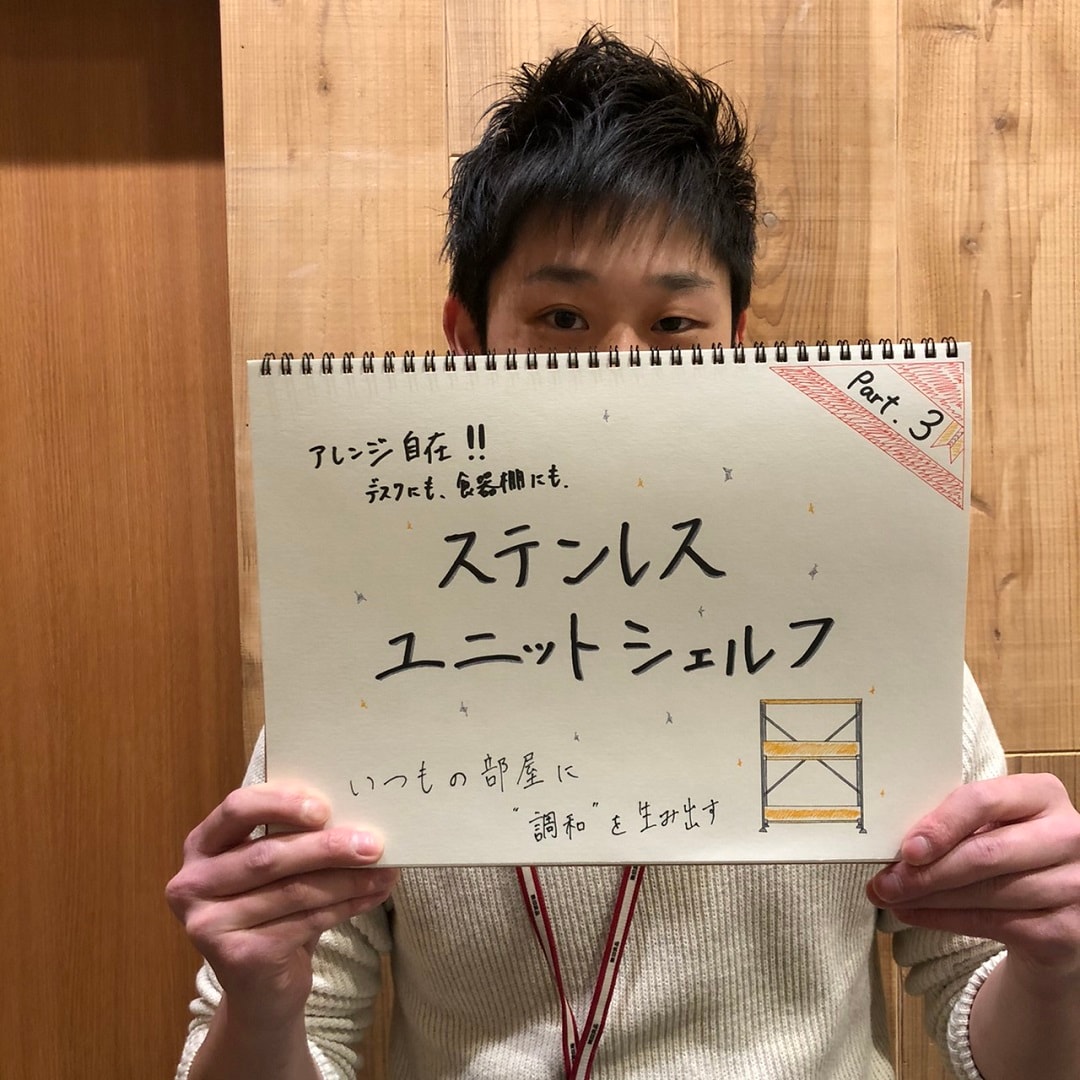 Part.3
アレンジ自在!!
デスクにも、食器棚にも.
ステンレス
ユニットシェルフ
いつもの部屋に
“調和”を生み出す